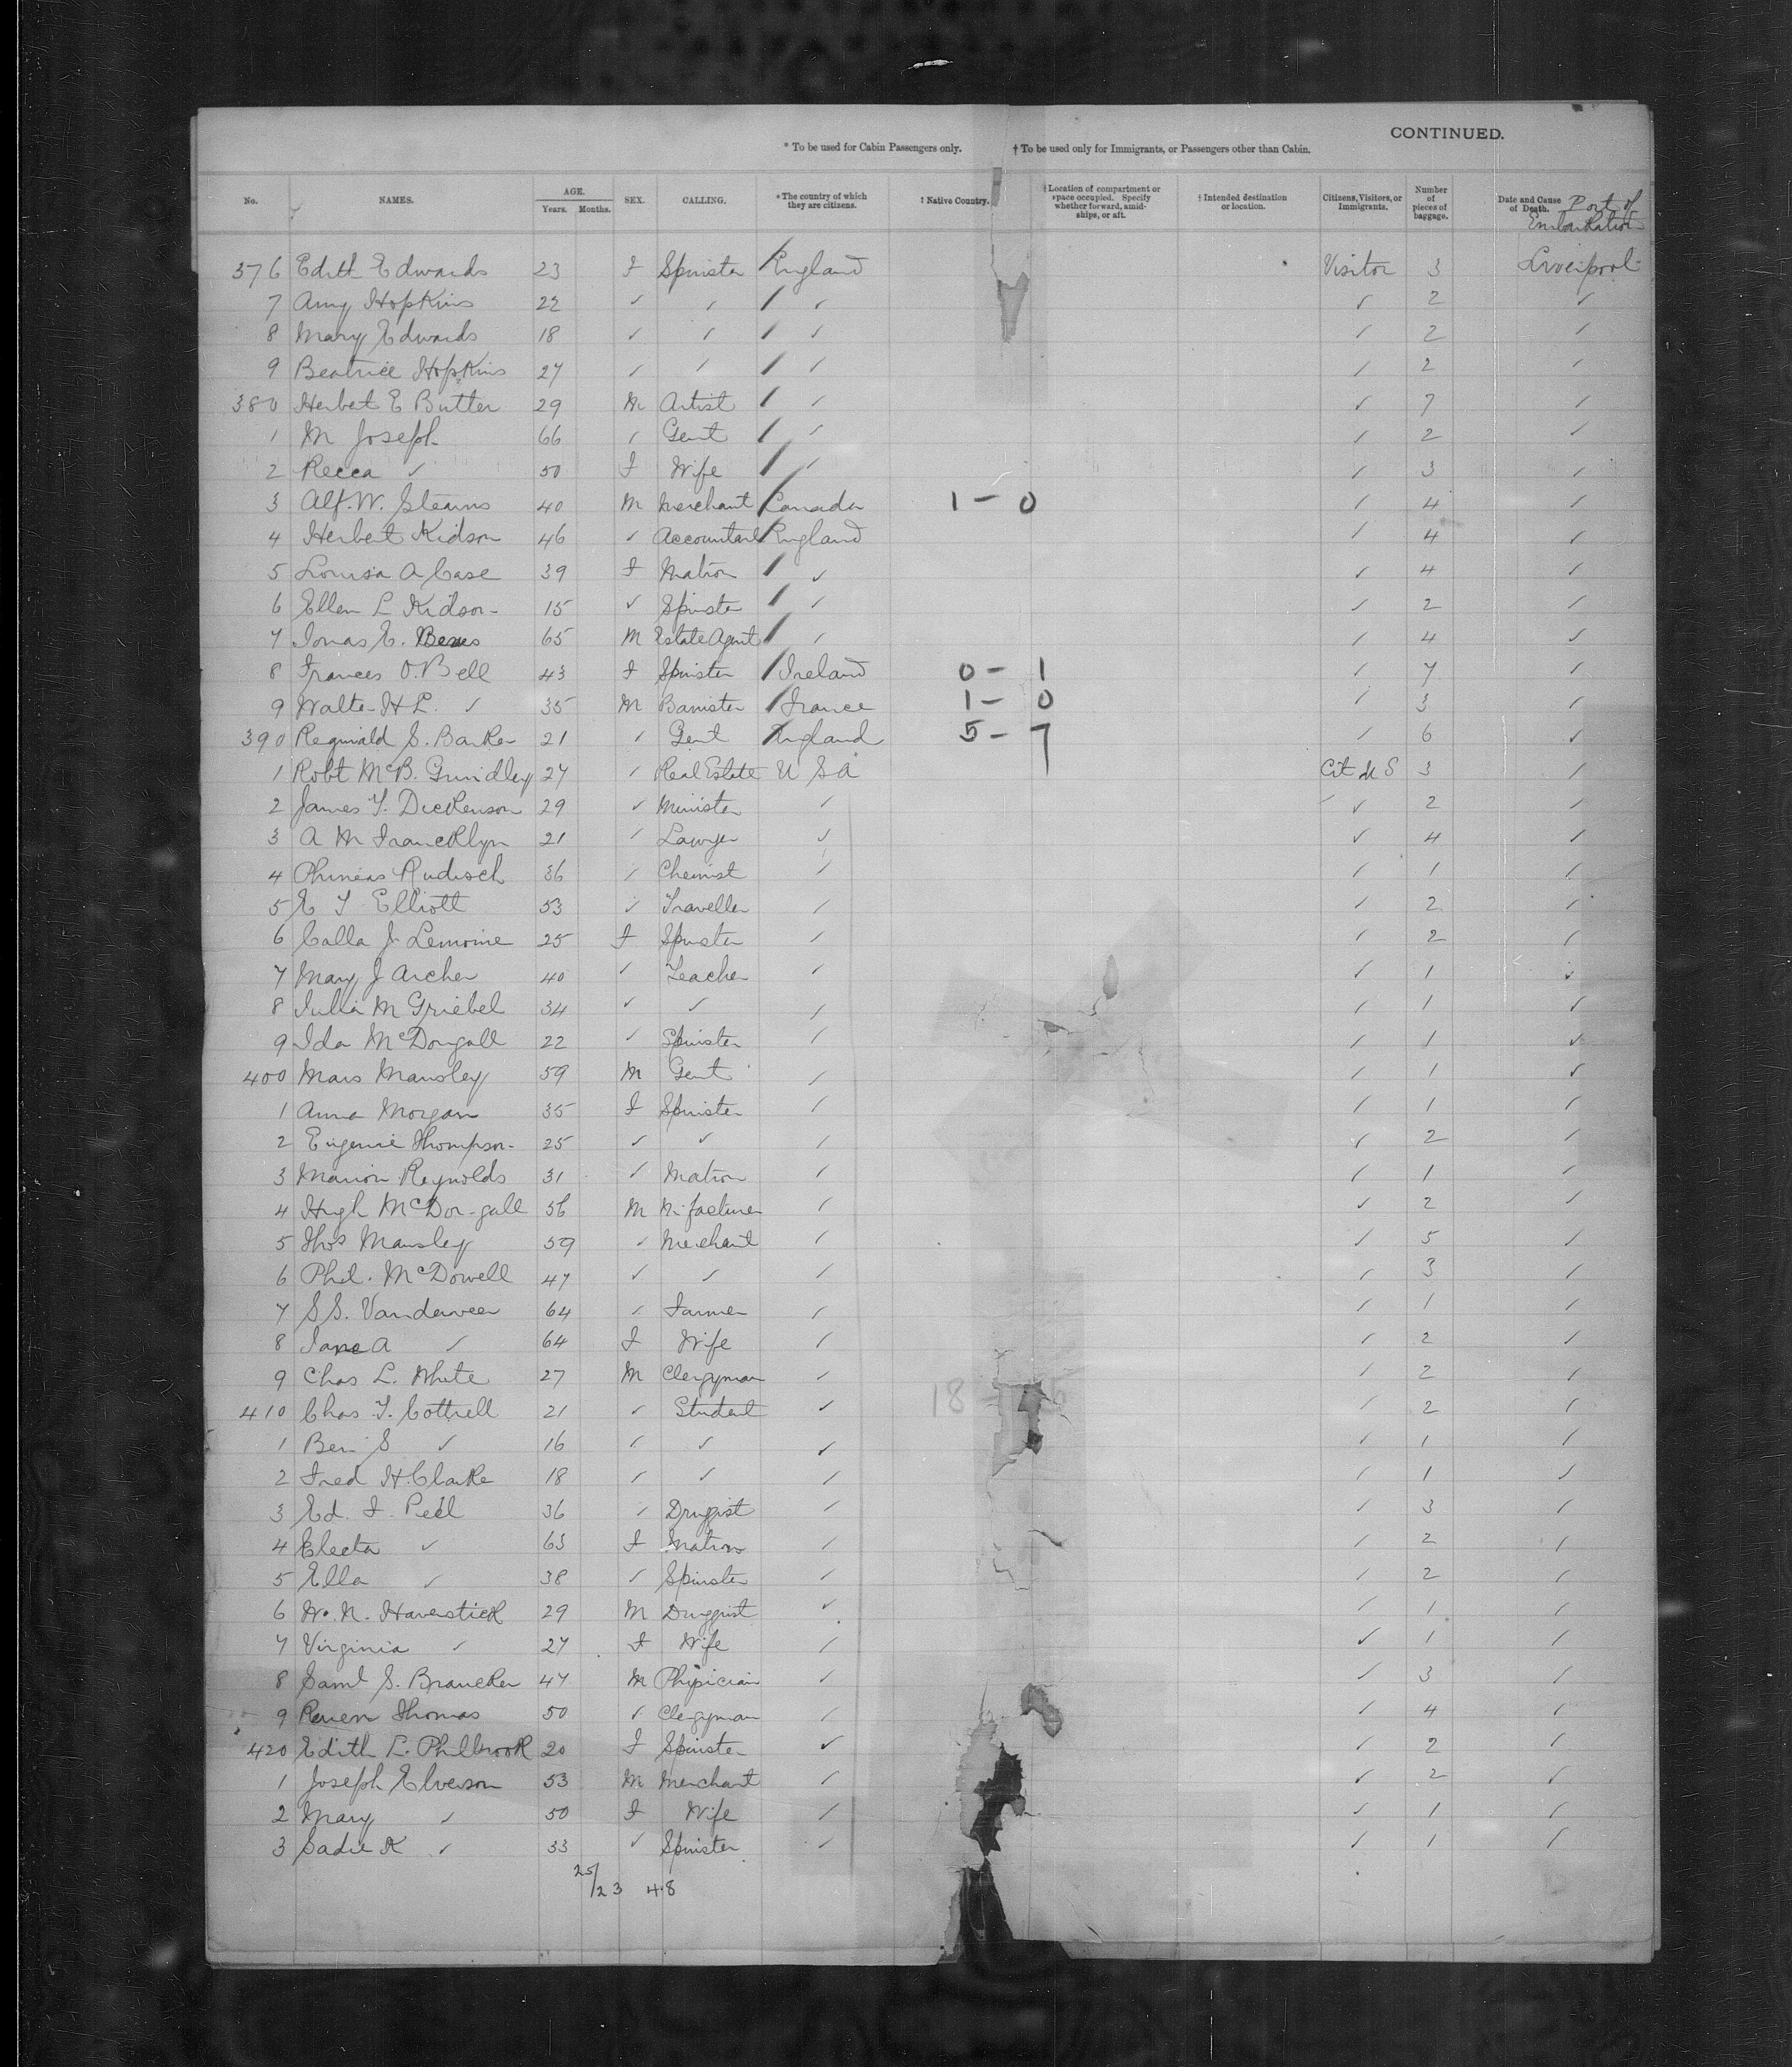 CONTINUED.
* To be used for Cabin Passengers only. † To be used only for Immigrants, or Passengers other than Cabin.
No. NAMES. AGE. Years. Months. SEX. CALLING. *The country of which they are citizens. † Native Country. †Location of compartment or space occupied. Specify whether forward, amidships, or aft. † Intended destination or location. Citizens, Visitors, or Immigrants. Number of pieces of baggage. Date and Cause of Death. Port of Embarkation
376 Edith Edwards 23 F Spinster England Visitor 3 Liverpool
7 Amy Hopkins 22 ✓ ✓ ✓ ✓ 2 ✓
8 Mary Edwards 18 ✓ ✓ ✓ ✓ 2 ✓
9 Beatrice Hopkins 27 ✓ ✓ ✓ ✓ 2 ✓
380 Herbet E Butter 29 M Artist ✓ ✓ 7 ✓
1 M Joseph 66 ✓ Gent ✓ ✓ 2 ✓
2 Recca ✓ 50 F Wife ✓ ✓ 3 ✓
3 Alf. W. Stearns 40 M Merchant Canada 1 - 0 ✓ 4 ✓
4 Herbert Kidson 46 ✓ Accountant England ✓ 4 ✓
5 Louisa A Case 39 F Matron ✓ ✓ 4 ✓
6 Ellen L Kidson 15 ✓ Spinster ✓ ✓ 2 ✓
7 Jonas E. 65 M Estate Agent ✓ ✓ 4 ✓
8 Frances O. Bell 43 F Spinster Ireland 0 - 1 ✓ 7 ✓
9 Walter H L. ✓ 35 M Barrister France 1 - 0 ✓ 3 ✓
390 Reginald S. Barker 21 ✓ Gent England 5 - 7 ✓ 6 ✓
1 Robt McB. Grindley 27 ✓ Real Estate U S A Cit U S 3 ✓
2 James T. Dickenson 29 ✓ Minister ✓ ✓ 2 ✓
3 A M Francklyn 21 ✓ Lawyer ✓ ✓ 4 ✓
4 Phineas Rudisch 36 ✓ Chemist ✓ ✓ 1 ✓
5 E T Elliott 53 ✓ Traveller ✓ ✓ 2 ✓
6 Calla J Lemoine 25 F Spinster ✓ ✓ 2 ✓
7 Mary J Archer 40 ✓ Teacher ✓ ✓ 1 ✓
8 Julia M Griebel 34 ✓ ✓ ✓ ✓ 1 ✓
9 Ida McDougall 22 ✓ Spinster ✓ ✓ 1 ✓
400 Mars Mansley 59 M Gent ✓ ✓ 1 ✓
1 Anna Morgan 35 F Spinster ✓ ✓ 1 ✓
2 Eugenie Thompson 25 ✓ ✓ ✓ ✓ 2 ✓
3 Marion Reynolds 31 ✓ Matron ✓ ✓ 1 ✓
4 Hugh McDougall 56 M M'facturer ✓ ✓ 2 ✓
5 Thos Mansley 59 ✓ Merchant ✓ ✓ 5 ✓
6 Phil. McDowell 47 ✓ ✓ ✓ ✓ 3 ✓
7 S S. Vanderveer 64 ✓ Farmer ✓ ✓ 1 ✓
8 Jane A ✓ 64 F Wife ✓ ✓ 2 ✓
9 Chas L. White 27 M Clergyman ✓ ✓ 2 ✓
410 Chas T. Cottrell 21 ✓ Student ✓ ✓ 2 ✓
1 Ben S ✓ 16 ✓ ✓ ✓ ✓ 1 ✓
2 Fred H. Clarke 18 ✓ ✓ ✓ ✓ 1 ✓
3 Ed. F. Peell 36 ✓ Drugist ✓ ✓ 3 ✓
4 Electa ✓ 63 F Matron ✓ ✓ 2 ✓
5 Ella ✓ 38 ✓ Spinster ✓ ✓ 2 ✓
6 W. N. Haverstick 29 M Druggist ✓ ✓ 1 ✓
7 Virginia ✓ 27 F Wife ✓ ✓ 1 ✓
8 Saml S. Braucker 47 M Phipician ✓ ✓ 3 ✓
9 Reuen Thomas 50 ✓ Clergyman ✓ ✓ 4 ✓
420 Edith L. Philbrook 20 F Spinster ✓ ✓ 2 ✓
1 Joseph Elverson 53 M Merchant ✓ ✓ 2 ✓
2 Mary ✓ 50 F Wife ✓ ✓ 1 ✓
3 Sadie K ✓ 33 ✓ Spinster ✓ ✓ 1 ✓
25/23 48